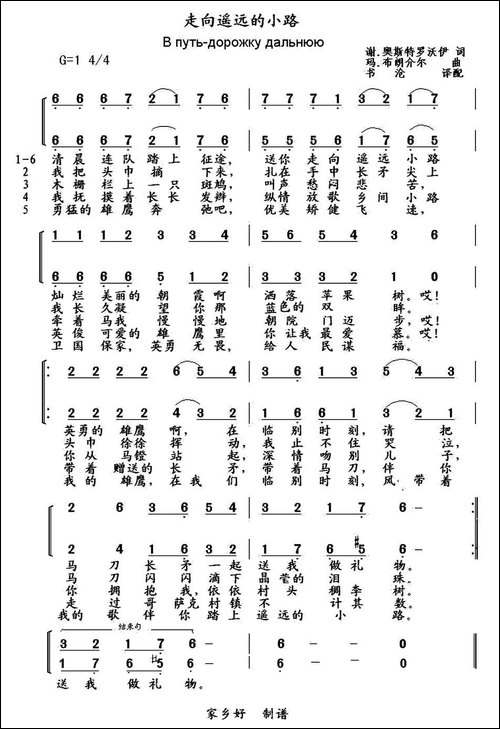 走向遥远的小路
В путь-дорожку дальнюю
G=1 4/4
谢.奥斯特罗沃伊 词
玛.布朗介尔 曲
书沦 译配
6 6 6 7 2 1 7 6 7 7 7 1 2 3 2 1 7
6 6 6 7 2 1 7 6 5 5 5 6 7 1 7 6 5
1-6 清晨连队踏上征途，送你走向遥远小路
2 我把头巾摘下来，扎在手中长矛尖上
3 木栅栏上一只斑鸠，叫声愁闷悲苦，
4 我抚摸着长长发辫，纵情放歌乡间小路
5 勇猛的雄鹰奔弛吧，优美矫健飞速，
1 1 1 2 3 3 4 5 6 5 4 3 6
6 6 6 5 1 2 3 3 3 2 1 0
灿烂美丽的朝霞啊洒落苹果树。哎！
我长久凝望你那蓝色的双眸。
牵着马我慢慢地朝院门迈步，哎！
英俊可爱的雄鹰里你让我最爱慕。哎！
卫国保家，英勇无畏，给人民谋福。
2 2 2 2 6 5 4 3 3 3 3 5 4
2 2 2 2 4 3 2 1 6 6 3 2 1
英勇的雄鹰啊，在临别时刻，请把
头巾徐徐挥动，我止不住哭泣，
你从马镫站起，深情吻别儿子，
带着赠送的长矛，带着马刀，伴你
我的雄鹰，在我们临别时刻，风带着
2 6 3 6 5 4 3 3 2 1 7 6 –
2 4 2 4 3 2 1 7 6 #5 6 –
马刀长矛一起送我做礼物。
马刀闪闪滴下晶莹的泪珠。
你拥抱我，依依村头稠李树。
走过哥萨克村镇不计其数。
我的歌伴你踏上遥远的小路。
结束句
3 2 1 7 6 – – 6 – – –
1 7 6 #5 6 – – 6 – – –
送我做礼物。
家乡好 制谱